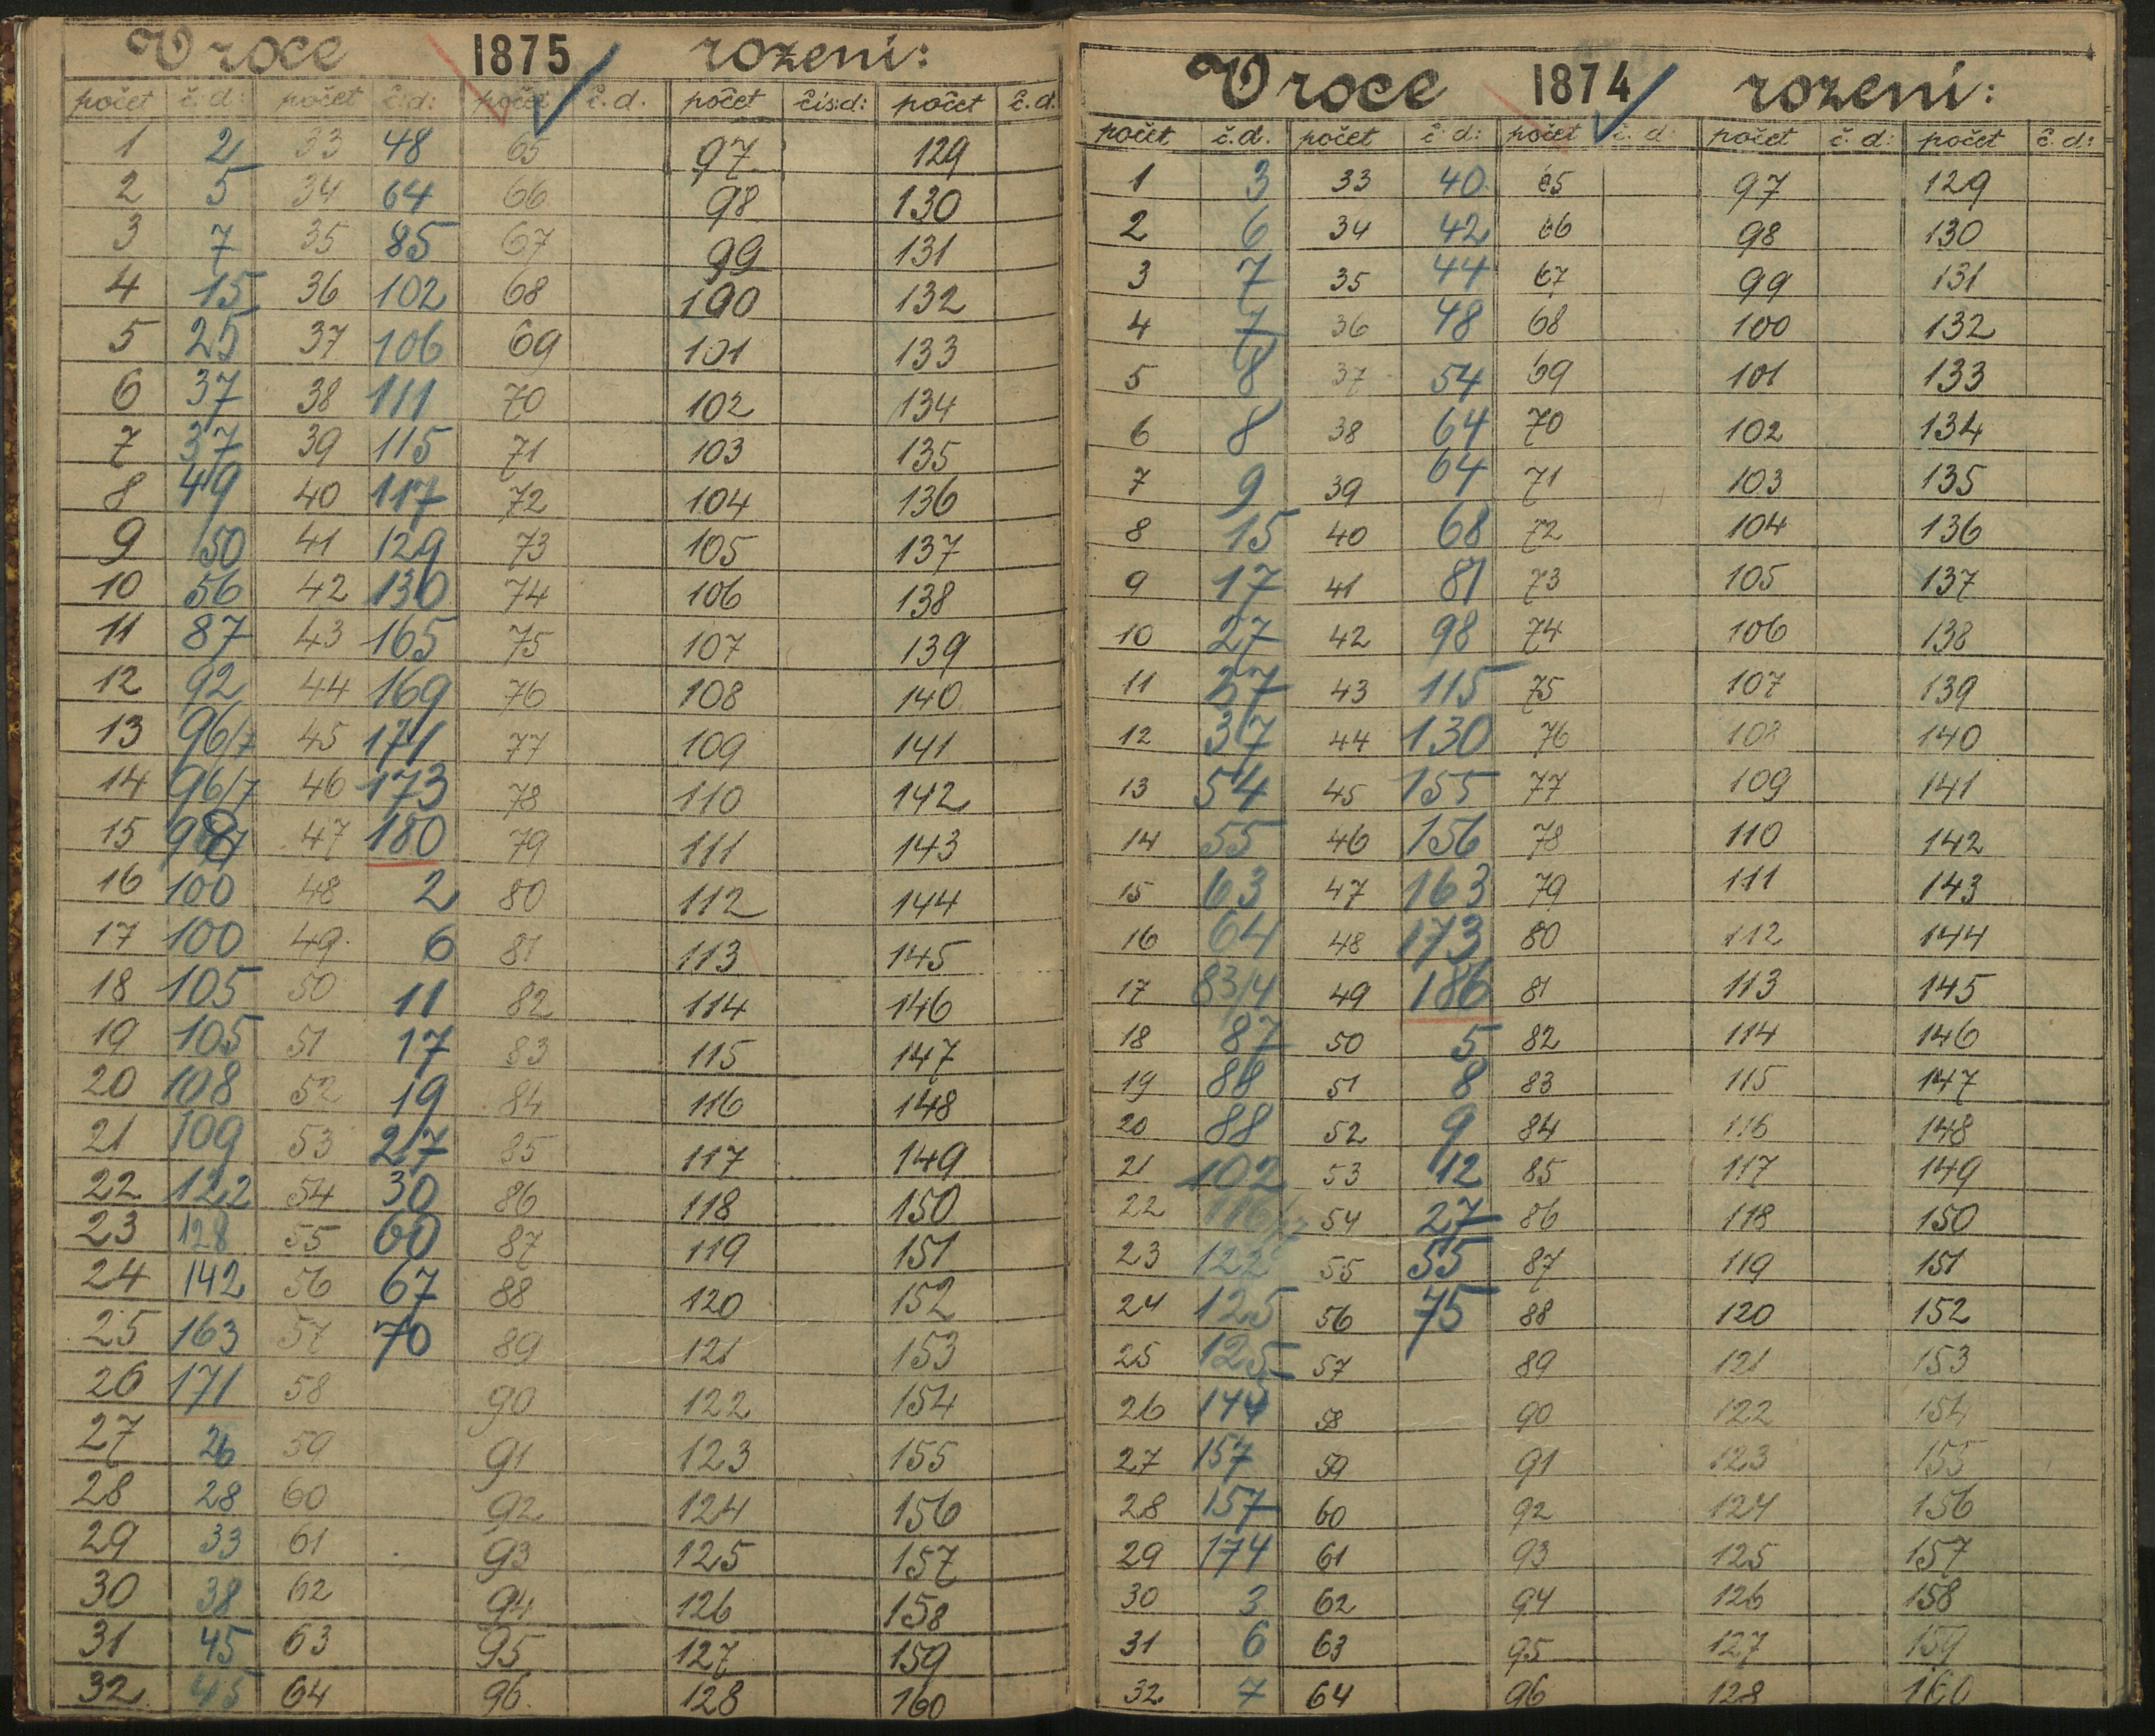 V roce 1875 rozeni:
počet č:d: počet č:d: počet č.d. počet čís:d: počet č.d.
1 2 33 48 65 97 129
2 5 34 64 66 98 130
3 7 35 85 67 99 131
4 15 36 102 68 100 132
5 25 37 106 69 101 133
6 37 38 111 70 102 134
7 37 39 115 71 103 135
8 49 40 117 72 104 136
9 50 41 129 73 105 137
10 56 42 130 74 106 138
11 87 43 165 75 107 139
12 92 44 169 76 108 140
13 96/7 45 171 77 109 141
14 96/7 46 173 78 110 142
15 47 180 79 111 143
16 100 48 2 80 112 144
17 100 49 6 81 113 145
18 105 50 11 82 114 146
19 105 51 17 83 115 147
20 108 52 19 84 116 148
21 109 53 27 85 117 149
22 122 54 30 86 118 150
23 128 55 60 87 119 151
24 142 56 67 88 120 152
25 163 57 70 89 121 153
26 171 58 90 122 154
27 26 59 91 123 155
28 28 60 92 124 156
29 33 61 93 125 157
30 38 62 94 126 158
31 45 63 95 127 159
32 45 64 96 128 160
V roce 1874 rozeni:
počet č.d. počet č:d: počet č.d: počet č.d: počet č.d:
1 3 33 40 65 97 129
2 6 34 42 66 98 130
3 7 35 44 67 99 131
4 7 36 48 68 100 132
5 8 37 54 69 101 133
6 8 38 64 70 102 134
7 9 39 64 71 103 135
8 15 40 68 72 104 136
9 17 41 81 73 105 137
10 27 42 98 74 106 138
11 37 43 115 75 107 139
12 37 44 130 76 108 140
13 54 45 155 77 109 141
14 55 46 156 78 110 142
15 63 47 163 79 111 143
16 64 48 173 80 112 144
17 83/4 49 186 81 113 145
18 87 50 5 82 114 146
19 88 51 8 83 115 147
20 88 52 9 84 116 148
21 102 53 12 85 117 149
22 54 27 86 118 150
23 122 55 55 87 119 151
24 125 56 75 88 120 152
25 125 57 89 121 153
26 144 58 90 122 154
27 157 59 91 123 155
28 157 60 92 124 156
29 174 61 93 125 157
30 3 62 94 126 158
31 6 63 95 127 159
32 7 64 96 128 160